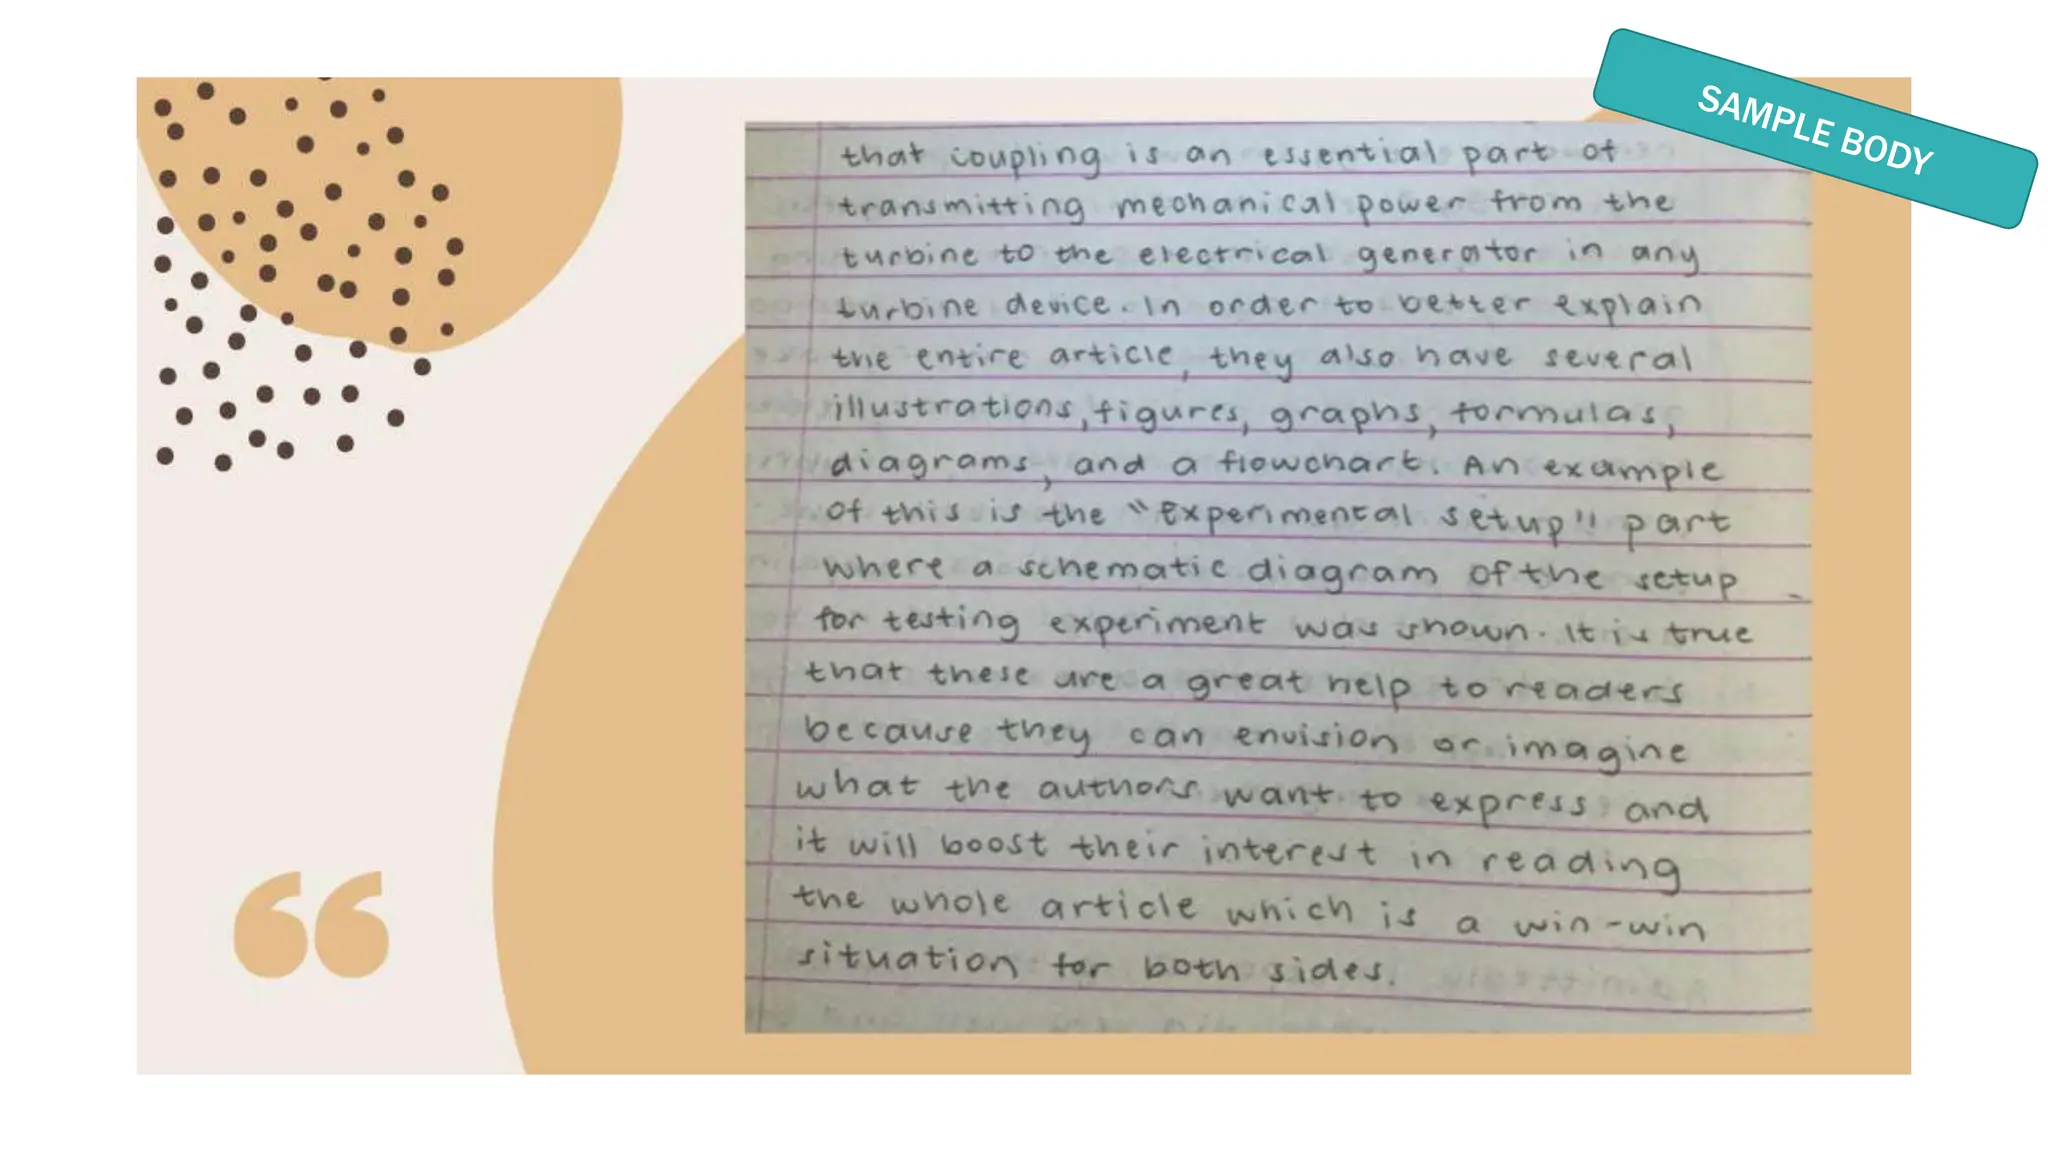 SAMPLE BODY
that coupling is an essential part of
transmitting mechanical power from the
turbine to the electrical generator in any
turbine device. In order to better explain
the entire article, they also have several
illustrations, figures, graphs, formulas,
diagrams, and a flowchart. An example
of this is the "Experimental setup" part
where a schematic diagram of the setup
for testing experiment was shown. It is true
that these are a great help to readers
because they can envision or imagine
what the authors want to express and
it will boost their interest in reading
the whole article which is a win-win
situation for both sides.